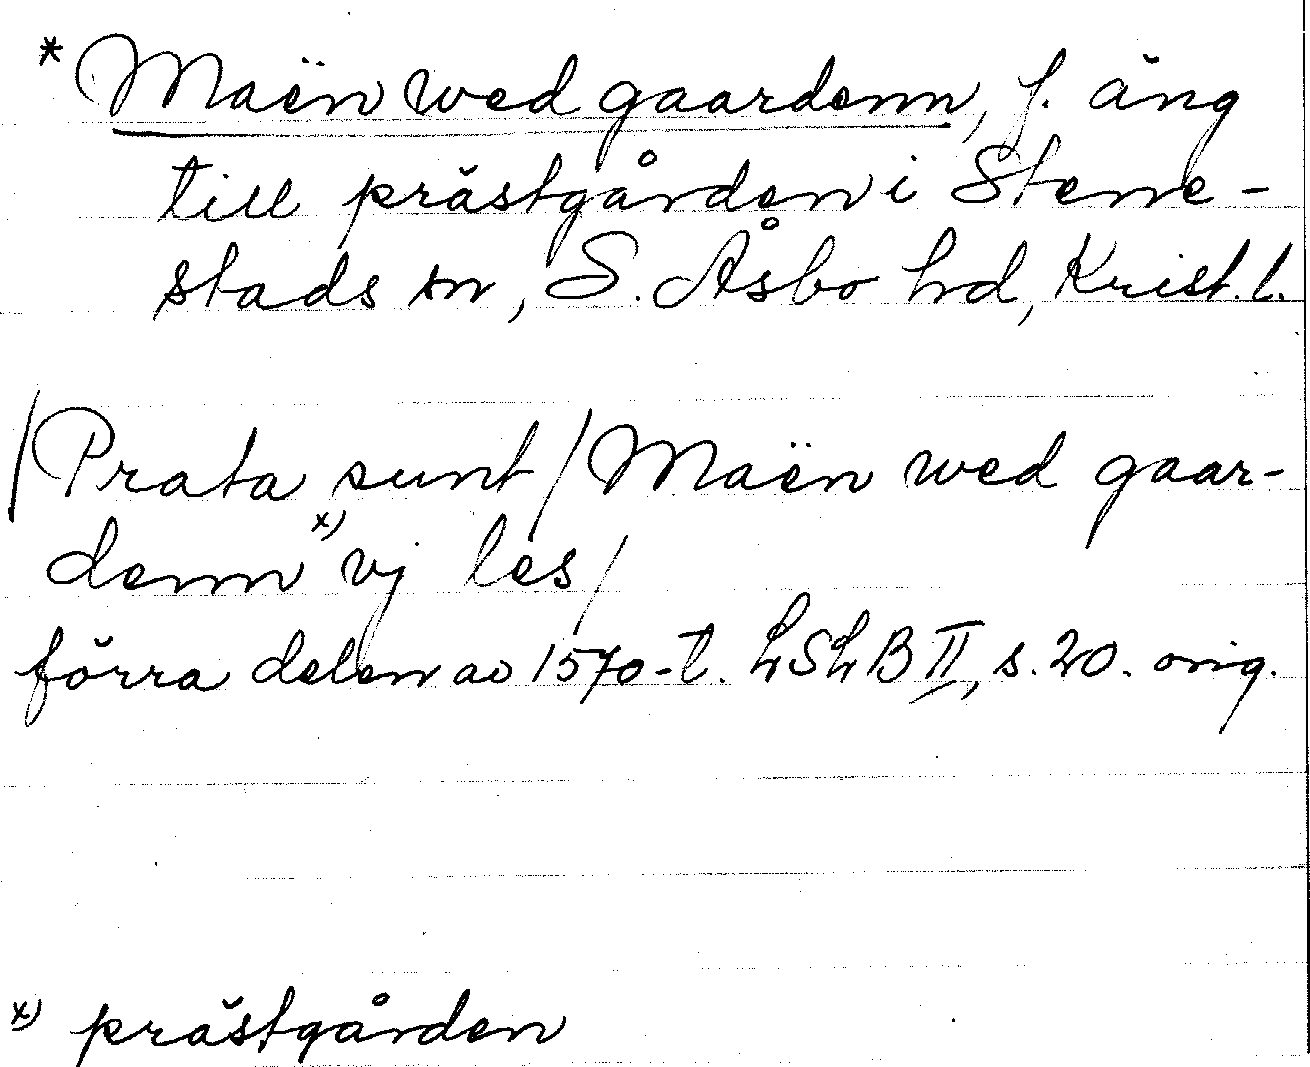 * Maën wed gaardenn, f. äng
till prästgården i Stene-
stads sn, S. Åsbo hd, Krist. l.
/Prata sunt/ Maën wed gaar-
denn x) vj les/
förra delen av 1570-t. LSLB II, s. 20. orig.
x) prästgården